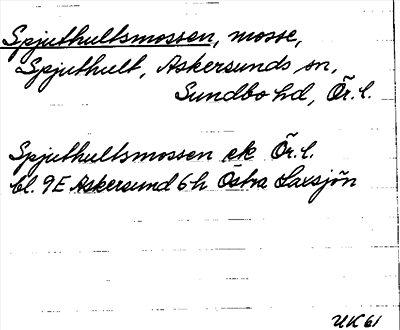 Spjuthultsmossen, mosse,
Spjuthult, Askersunds sn,
Sundbo hd, Ör. l.
Spjuthultsmossen ek Ör. l.
bl. 9E Askersund 6h Östra Laxsjön
UK 61